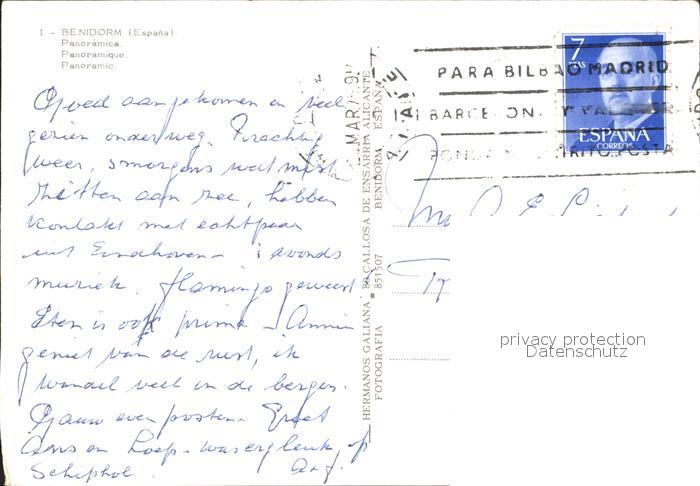 1 - BENIDORM (España).
Panorámica.
Panoramique.
Panoramic.
Goed aangekomen en veel
gezien onderweg. Prachtig
weer, smorgens wat mist
zitten aan zee, hebben
kontakt met echtpaar
uit Eindhoven - 's avonds
muziek, flamingo geweest
Eten is ook prima - Annie
geniet van de rust, ik
wandel veel in de bergen.
Gauw even posten. Groet
en Loop was erg leuk, op
Schiphol.
HERMANOS GALIANA CALLOSA DE ENSARRIA ALICANTE
FOTOGRAFIA 851507 BENIDORM ESPAÑA
MAR
PARA BILBAO MADRID
BARCELONA Y
DISTRITO POSTA
7
PTAS
ESPAÑA
CORREOS
privacy protection
Datenschutz